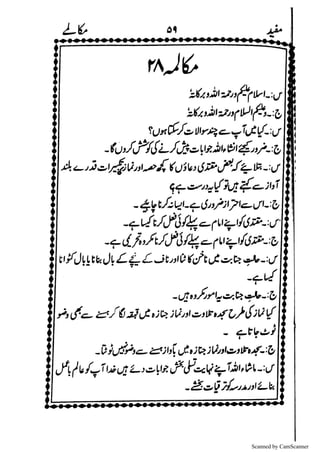 مفید ۵۹ مکالمے
مکالمہ ۲۸
س:۔ السلام علیکم ورحمۃ اللہ وبرکاتہ
ج:۔ وعلیکم السلام ورحمۃ اللہ وبرکاتہ
س:۔ کیا میں آپ سے چند سوالات کر سکتا ہوں؟
ج:۔ ضرور کیجئے انشاء اللہ جوابات پیش کرنے کی کوشش کروں گا۔
س:۔ بتلایئے کہ بعض مقتدی دعاؤں کا کچھ حصہ اور نماز تکبیرات قدرے بلند
آواز سے کہتے ہیں تو کیا یہ درست ہے؟
ج:۔ اس سے احتراز ضروری ہے۔ ایسا نہ کرنا چاہیے۔
س:۔ مقتدی کو اپنے امام سے پہلے کوئی فعل کرنا کیسا ہے۔
ج:۔ مقتدی کو اپنے امام سے پہلے کوئی فعل کرنا مکروہ تحریمی ہے۔
س:۔ حالتِ جنابت میں ناخن کاٹنا اور ناف کے نیچے کے بال بنانا یا بال کٹوانا
کیسا ہے۔
ج:۔ حالتِ جنابت یہ امور مکروہ ہیں۔
کیا نماز کی طرح سجدہ تلاوت اور نماز جنازہ میں قہقہہ لگا کر ہنسنے سے بھی وضو
ٹوٹ جاتا ہے۔
ج:۔ سجدہ تلاوت اور نماز جنازہ میں بآواز ہنسنے سے وضو نہیں ٹوٹتا۔
س:۔ ماشاء اللہ آپ نے نہایت تسلی بخش جوابات دے ہیں خدا آپ کو عالم باعمل
بنائے اور مدرسہ کو ترقیات بخشے۔
Scanned by CamScanner